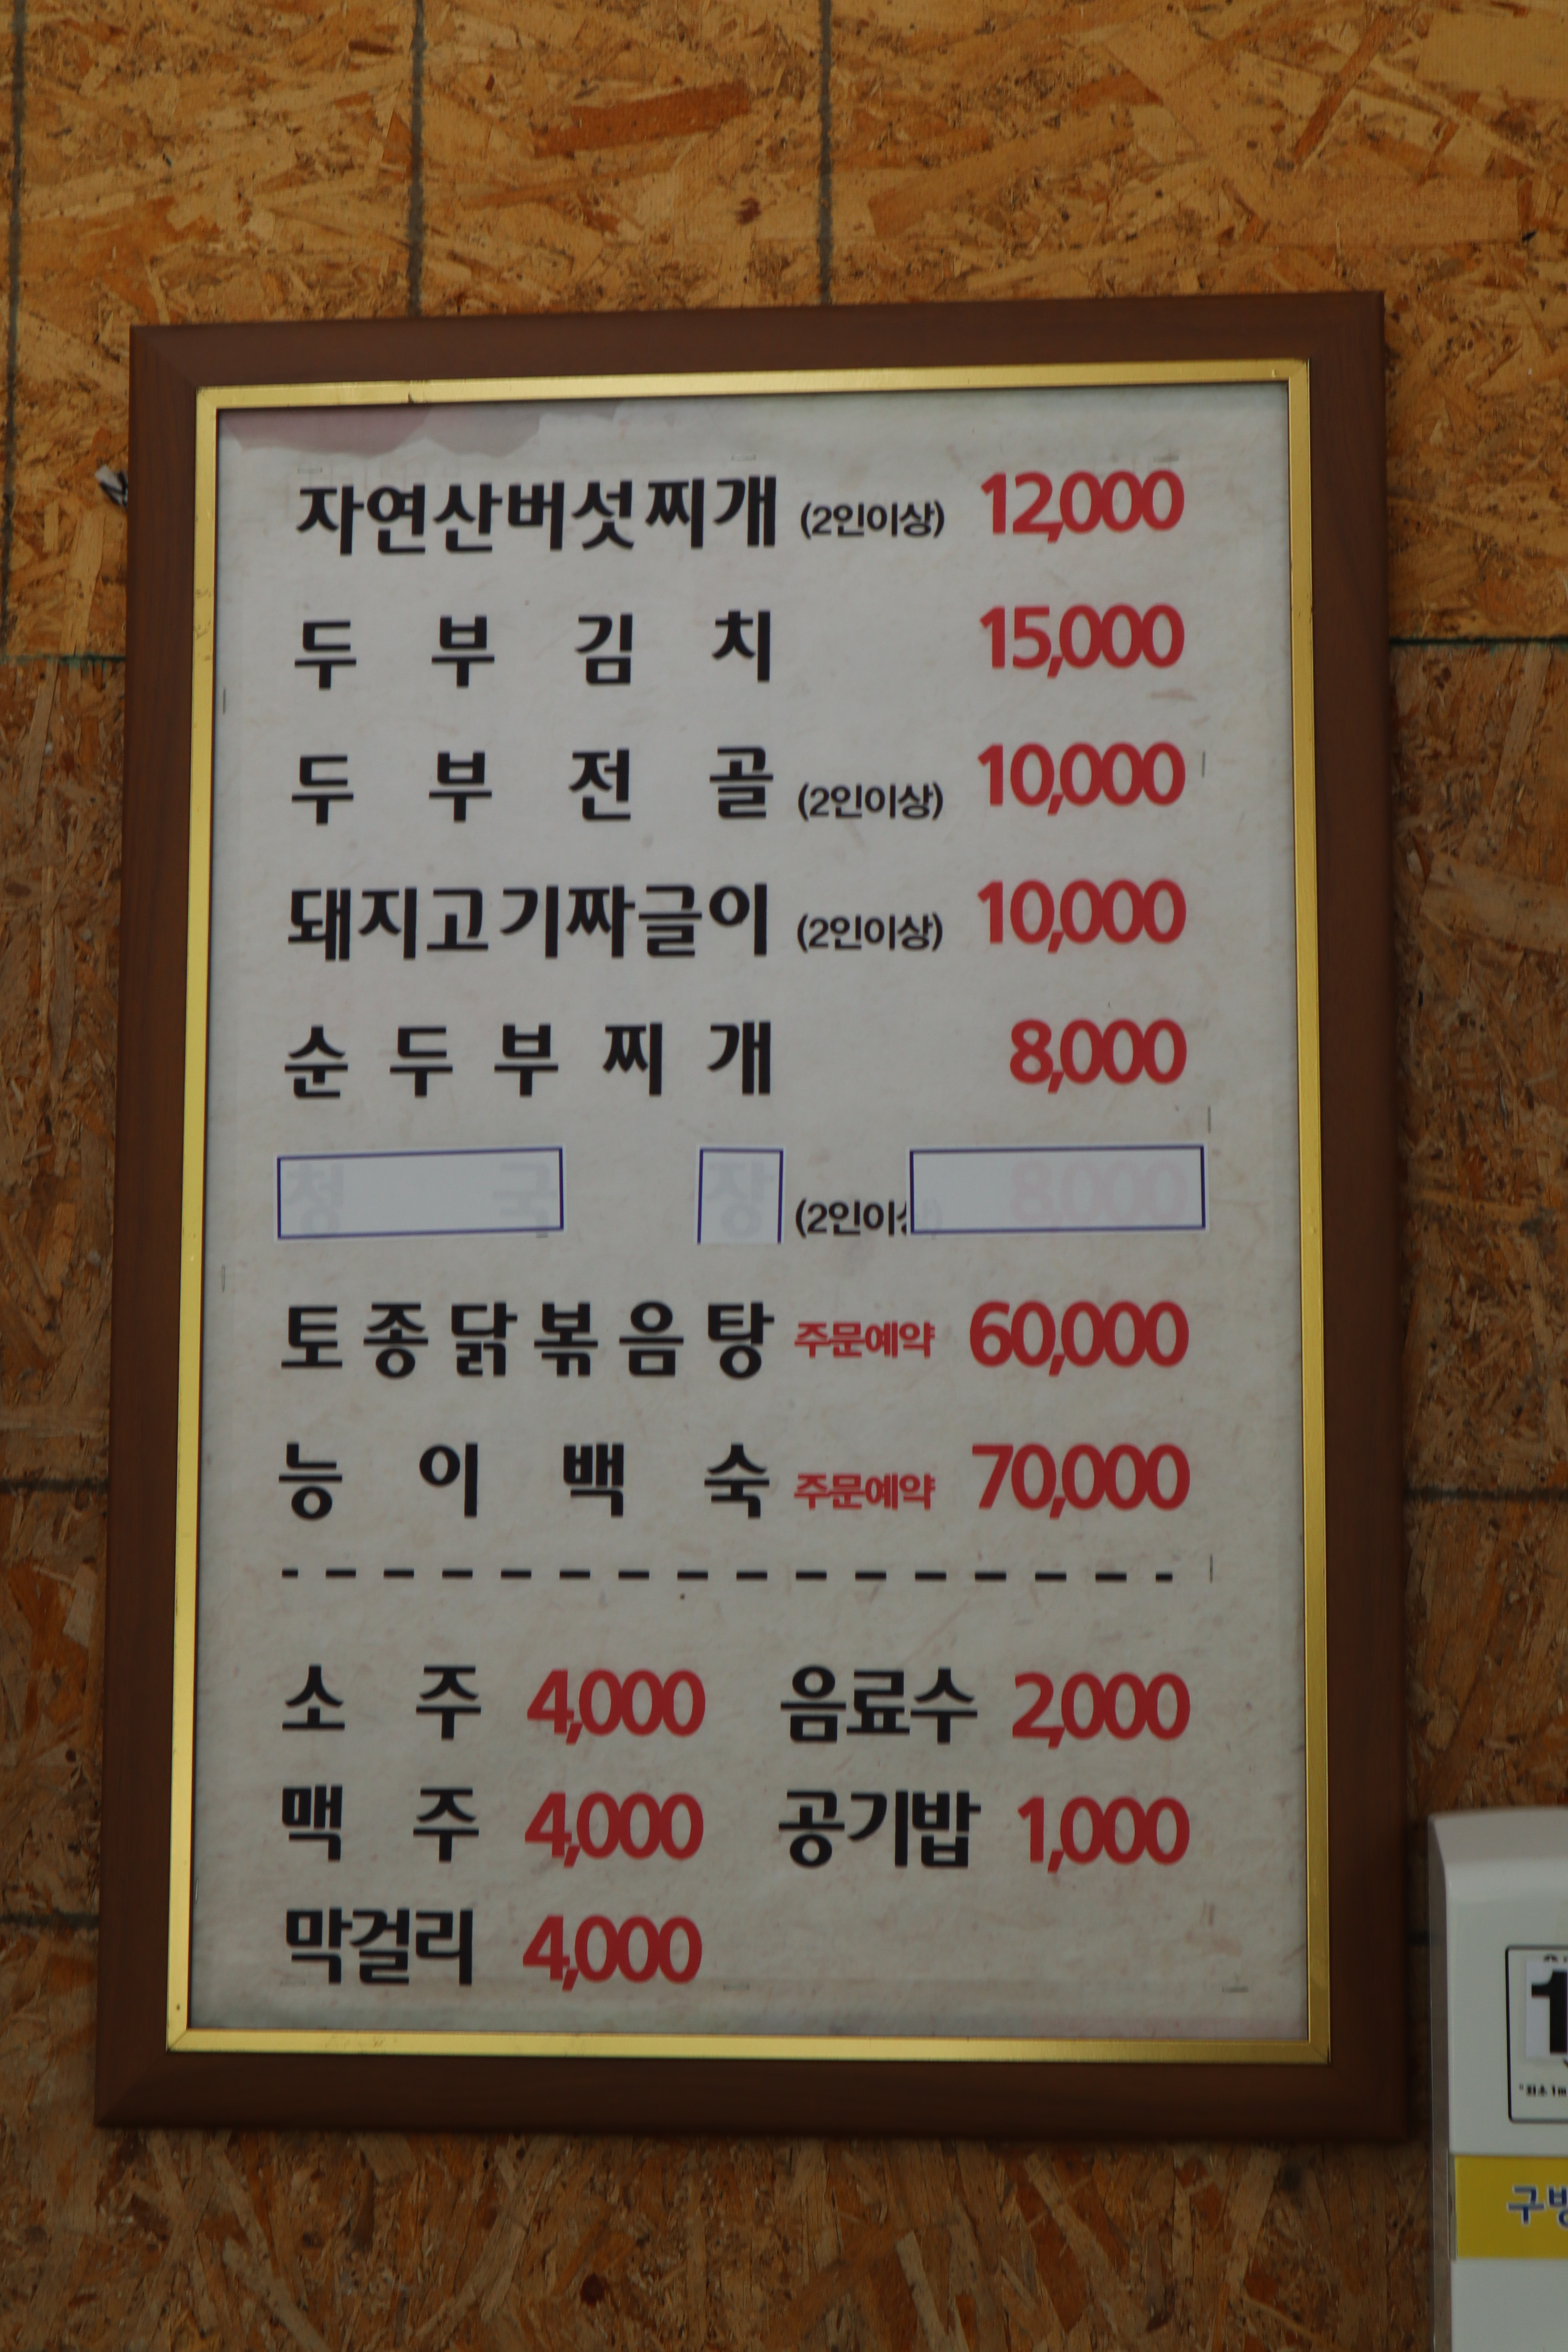 자연산버섯찌개 (2인이상) 12,000
두부김치 15,000
두부전골 (2인이상) 10,000
돼지고기짜글이 (2인이상) 10,000
순두부찌개 8,000
청국장 (2인이상) 8,000
토종닭볶음탕 주문예약 60,000
능이백숙 주문예약 70,000
소주 4,000 음료수 2,000
맥주 4,000 공기밥 1,000
막걸리 4,000